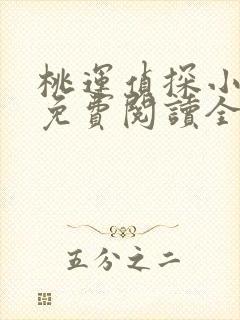 桃運偵探小
免費閱讀全
五分之二